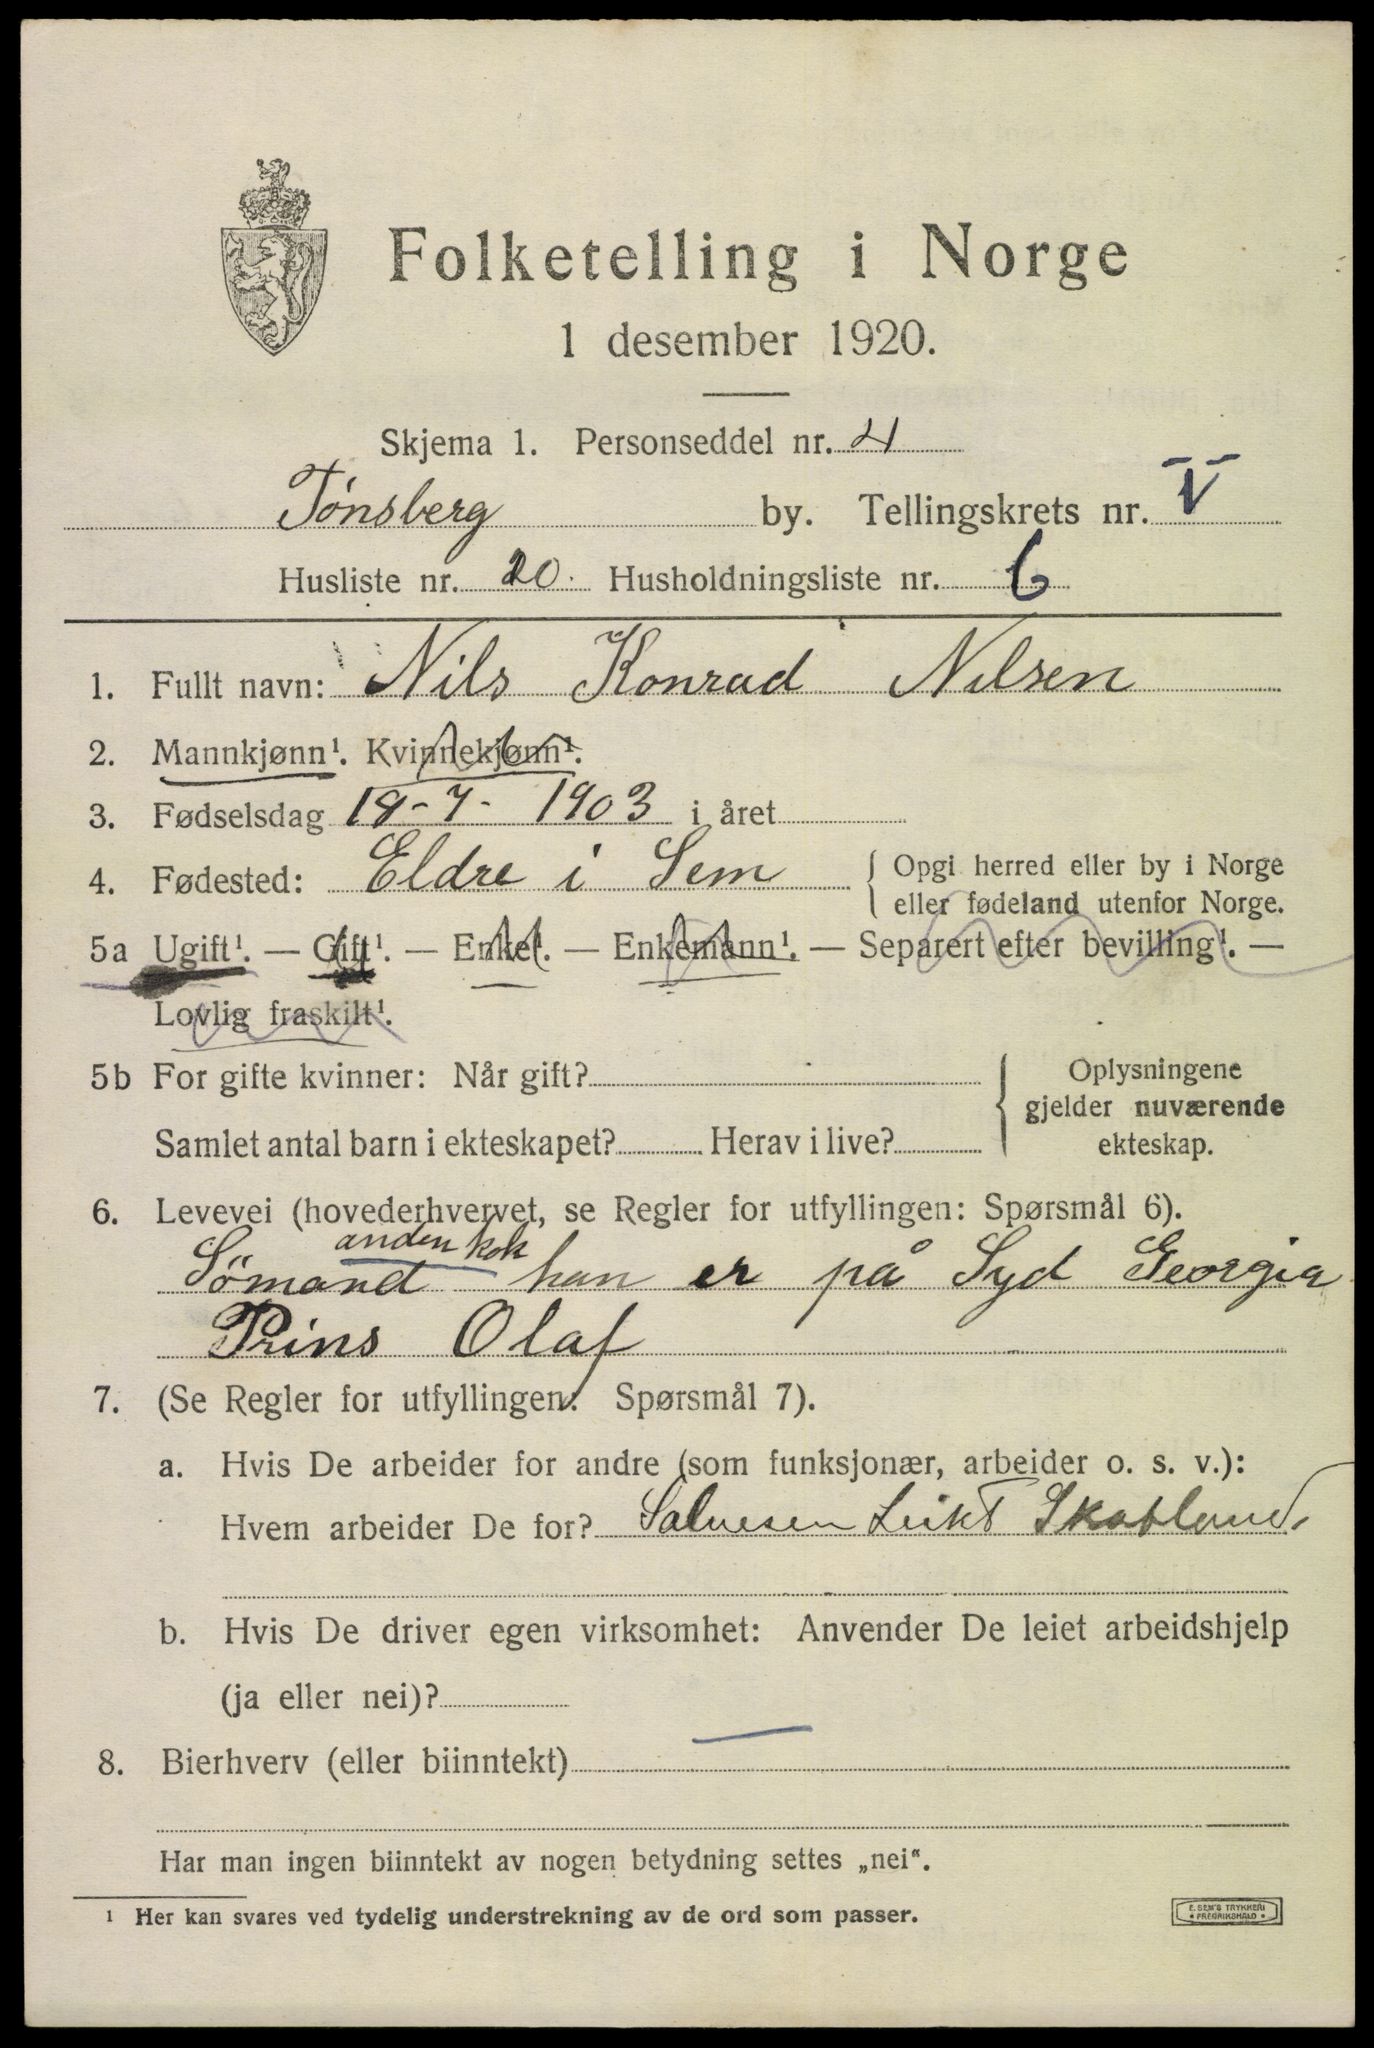 Folketelling i Norge
1 desember 1920.
Skjema 1. Personseddel nr. 4
Tønsberg by. Tellingskrets nr. V
Husliste nr. 20. Husholdningsliste nr. 6
1. Fullt navn: Nils Konrad Nilsen
2. Mannkjønn¹. Kvinnekjønn¹.
3. Fødselsdag 18-7- 1903 i året
4. Fødested: Eldre i Sem { Opgi herred eller by i Norge
eller fødeland utenfor Norge.
5a Ugift¹. — Gift¹. — Enke¹. — Enkemann¹. — Separert efter bevilling¹. —
Lovlig fraskilt¹.
5b For gifte kvinner: Når gift? { Oplysningene
gjelder nuværende
Samlet antal barn i ekteskapet? Herav i live? ekteskap.
6. Levevei (hovederhvervet, se Regler for utfyllingen: Spørsmål 6).
anden kok
Sömand han er på Syd Georgia
Prins Olaf
7. (Se Regler for utfyllingen: Spørsmål 7).
a. Hvis De arbeider for andre (som funksjonær, arbeider o. s. v.):
Hvem arbeider De for? Salvesen Leikt Skotland.
b. Hvis De driver egen virksomhet: Anvender De leiet arbeidshjelp
(ja eller nei)?
8. Bierhverv (eller biinntekt) —
Har man ingen biinntekt av nogen betydning settes „nei“.
¹ Her kan svares ved tydelig understrekning av de ord som passer.
E. SEM'S TRYKKERI
• FREDRIKSHALD •